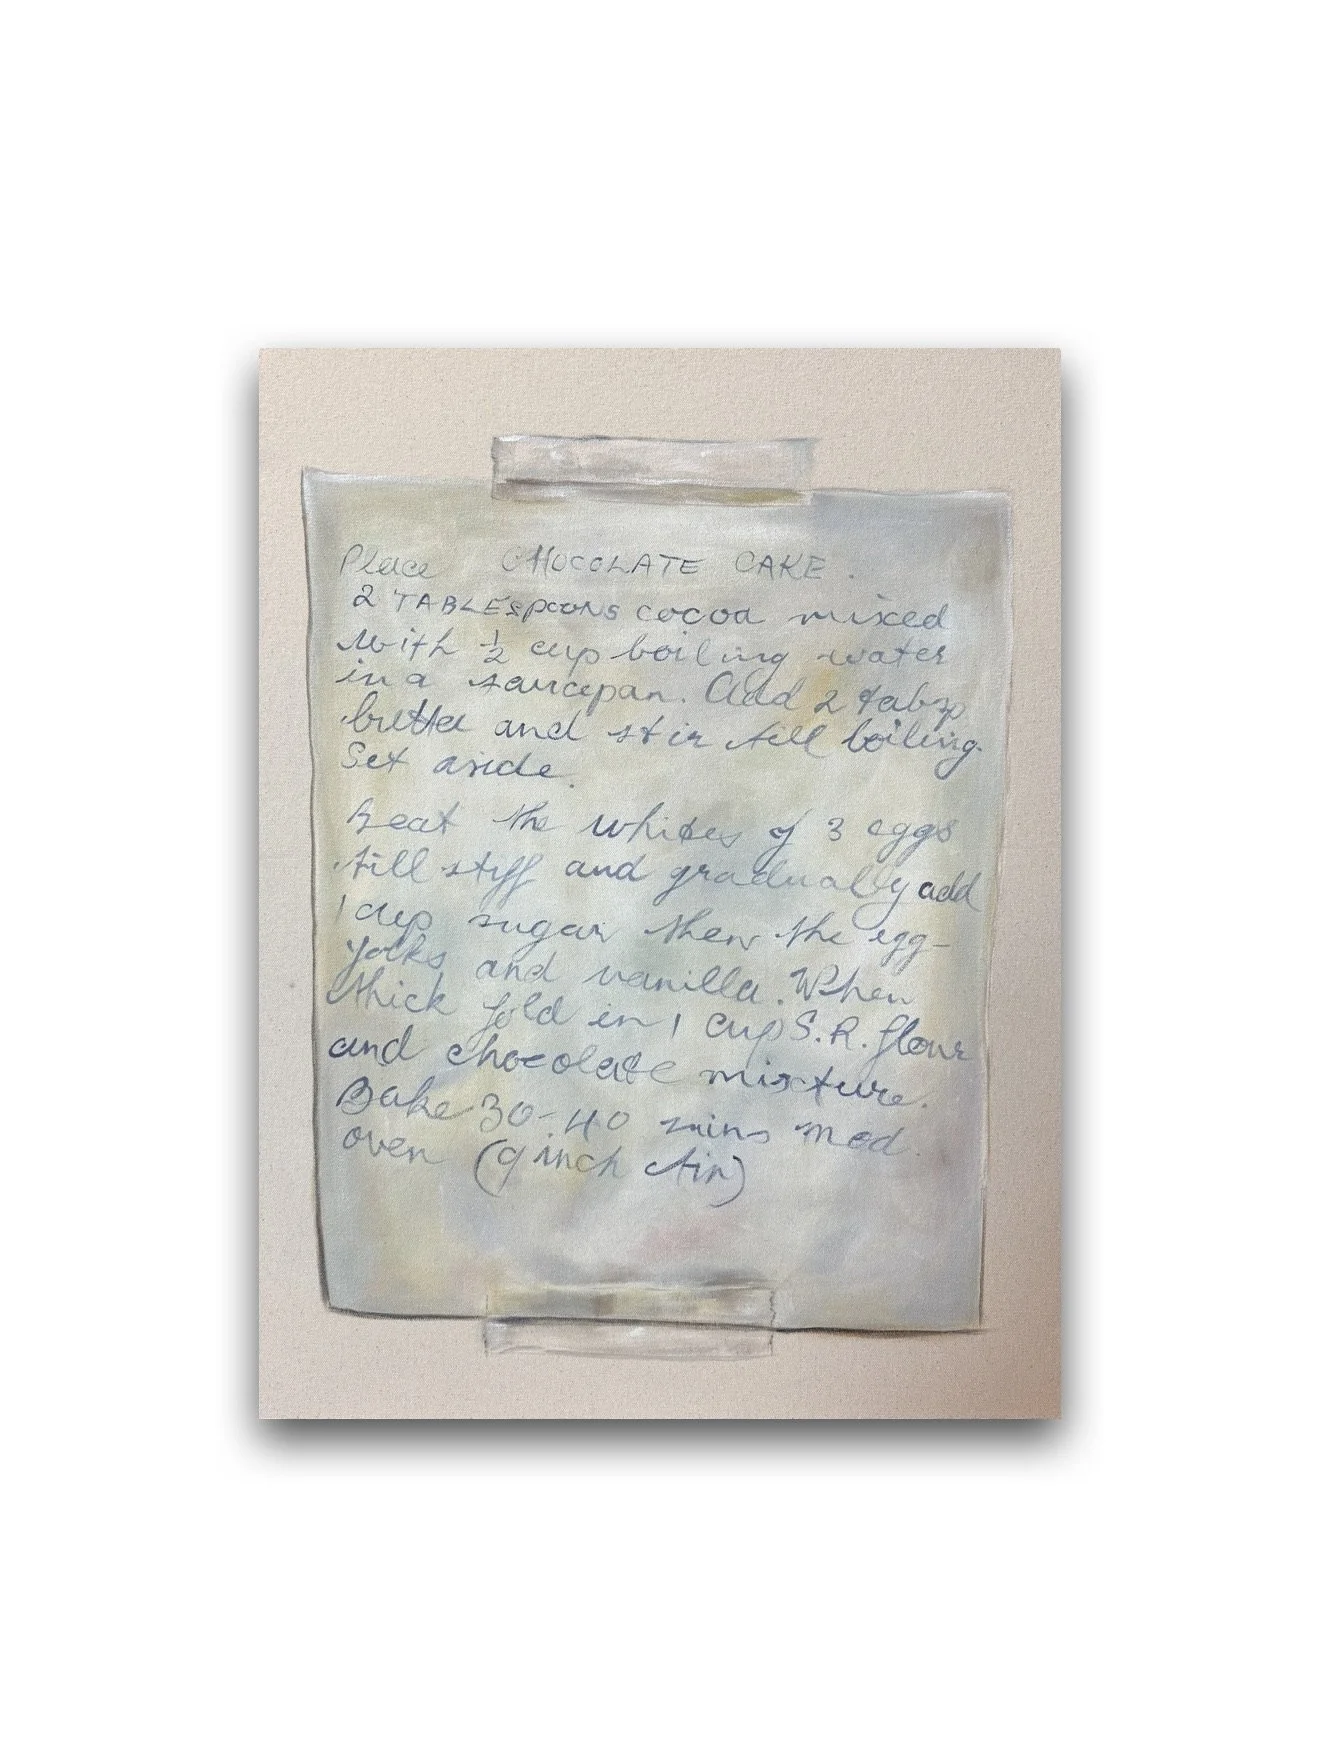 Place CHOCOLATE CAKE.
2 TABLESpooNS cocoa mixed
with ½ cup boiling water
in a saucepan. Add 2 tabsp
butter and stir till boiling.
Set aside.
Beat the whites of 3 eggs
till stiff and gradually add
1 cup sugar then the egg-
yolks and vanilla. When
thick fold in 1 cup S.R. flour
and chocolate mixture.
Bake 30-40 mins mod.
oven (9 inch tin)